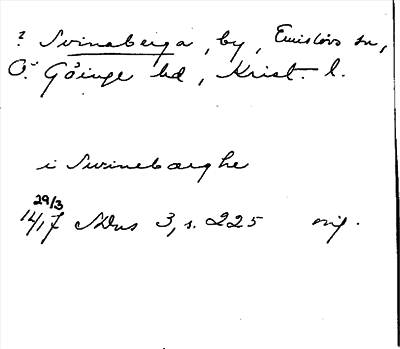 ? Svinaberga, by, Emislövs sn,
Ö. Göinge hd, Krist. l.
i Swineberghe
29/3
1417 SDns 3, s. 225 orig.